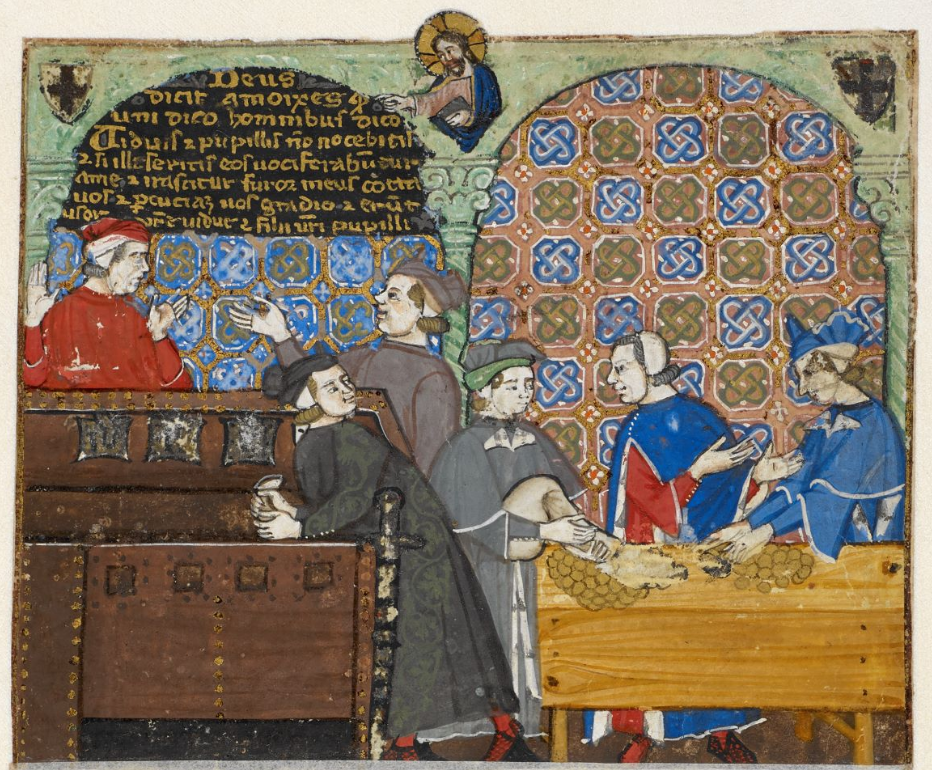 Deus
dicit amoixes q
uni dico hominibus dico
Uiduis ⁊ pupillis no nocebitis
⁊ si illeseritis eos uociferabu
ame ⁊ irascitur furor meus cotra
uos ⁊ pcuciaz uos gradio ⁊ erut
uidue ⁊ filii uri pupilli